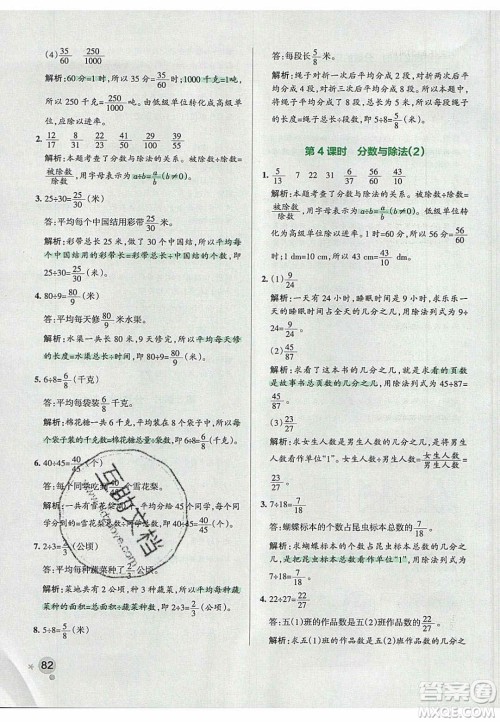 (4) 35/60 250/1000
解析:60分=1时,所以35分=35/60时;1000千克=1吨,
所以250千克=250/1000吨,由低级单位转化成高级单
位,应除以进率。
2. 12/17 8/19 31/33
解析:本题考查了分数与除法的关系。被除数÷除数=
被除数/除数,用字母表示为a÷b=a/b(b≠0)。
3. 25÷30=25/30(米)
答:平均每个中国结用彩带25/30米。
解析:彩带长25米,做了30个中国结,所以平均每
个中国结用彩带的长度=彩带总长÷中国结的个数,即
25÷30=25/30(米)。
4. 80÷9=80/9(米)
答:平均每天修80/9米水渠。
解析:水渠长80米,9天修完,所以平均每天修
的长度=水渠总长÷时间,即80÷9=80/9(米)。
5. 6÷8=6/8(千克)
答:平均每袋装6/8千克。
解析:棉花糖一共6千克,平均装了8袋,所以每
个袋子装的千克数=棉花糖总千克数÷袋子的个数,
即6÷8=6/8(千克)。
6. 40÷45=40/45(个)
答:每个同学吃40/45个雪花梨。
解析:40个雪花梨平均分给45个同学,所以平均每个同
学分到的雪花梨的个数=雪花梨总个数÷同学总人
7. 2÷3=2/3(公顷)
答:平均每种蔬菜种了2/3公顷。
解析:菜地共2公顷,种3种蔬菜,所以平均每种蔬
菜的面积=总面积÷蔬菜种数,即2÷3=2/3(公顷)。
8. 5÷8=5/8(米)
82
答:每段长5/8米。
解析:绳子对折一次后平均分成2段,对折两次后平
均分成4段,对折三次后平均分成8段,所以每段绳子
的长度=绳子总长÷段数,即5÷8=5/8(米)。
第4课时 分数与除法(2)
1. 5/13 7 32 56/60 43/10
解析:本题考查了分数与除法的关系。被除数÷除数=
被除数/除数,用字母表示为a÷b=a/b(b≠0)。低级单位转化成
高级单位除以进率。1时=60分,所以56分=56/60
时;1 dm=10 cm,所以43 cm=43/10 dm。
2. (1) 9/24
解析:一天有24小时,睡眠时间有9小时,求乐乐一
天的睡眠时间占全天的几分之几,用除法列式为
9÷24=9/24。
(2) 45/87
解析:求看了这本书的几分之几,就是求看的页数
是故事书总页数的几分之几,用除法列式为45÷87=
45/87。
(3) 23/27
解析:求女生人数是男生人数的几分之几,是将男生
人数看作单位“1”,用女生人数÷男生人数=女生人数/男生人数。
3. 7÷18=7/18
答:蝴蝶标本的个数占昆虫标本个数的7/18。
解析:求蝴蝶标本的个数占昆虫标本个数的几分之
几,是把昆虫标本个数看作单位“1”,用除法列式为
7÷18=7/18。
4. 22÷27=22/27
答:五(1)班作品数占五(5)班作品数的22/27。
解析:求五(1)班的作品数是五(5)班作品数的几分
互助文档
答案圈
MXQE.COM